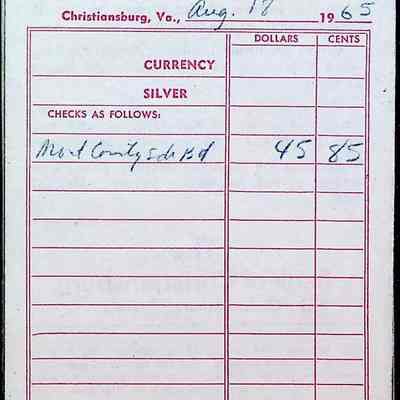 Christiansburg, Va., Aug. 18 1965
DOLLARS CENTS
CURRENCY
SILVER
CHECKS AS FOLLOWS:
Mont County Sch Bd 45 85